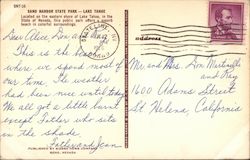 SAND HARBOR STATE PARK — LAKE TAHOE
Located on the eastern shore of Lake Tahoe, in the
State of Nevada, this public park offers a superb
beach in colorful surroundings.
Dear Alice, Don and
This is the beach
where we spend most of
our time. The weather
had been nice until today
We all got a little burnt
except Father who sits
in the shade.
Love
and Jean
address
Mr. and Mrs. Don Martinelli
and Family
1600 Adams Street
St. Helena, California